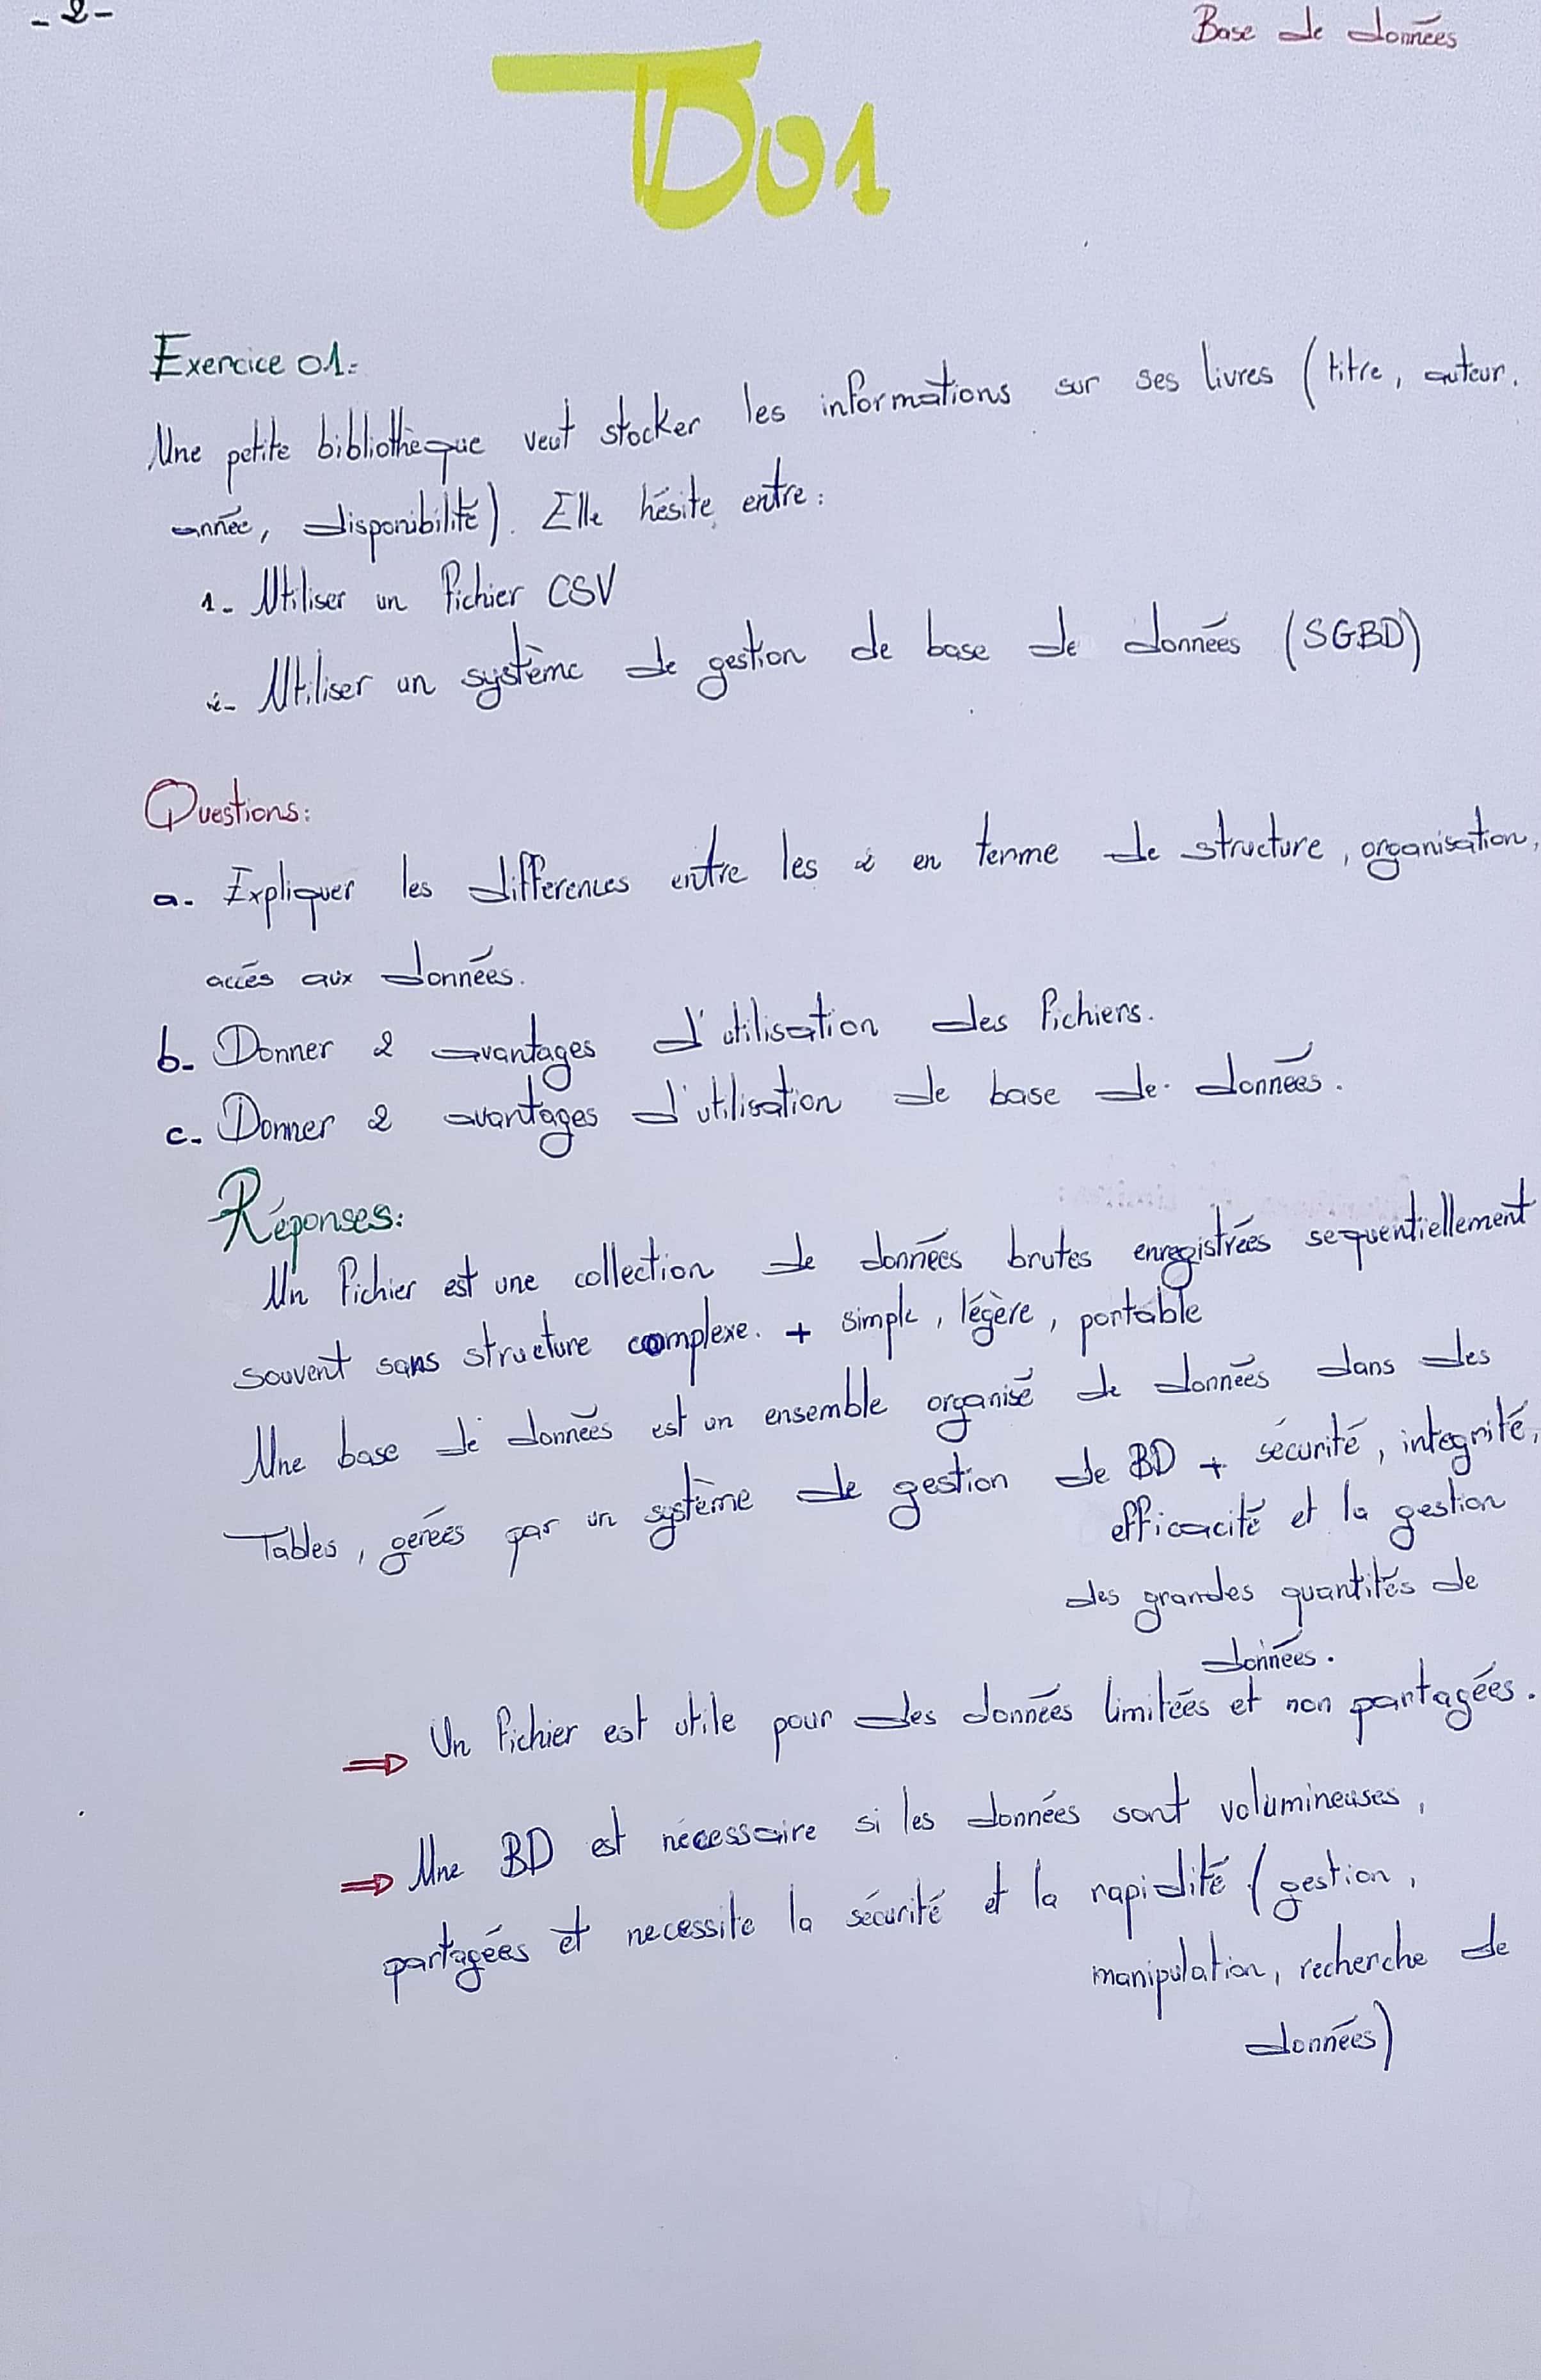 - 2 -
Base de données
TD 01
Exercice 01:
Une petite bibliothèque veut stocker les informations sur ses livres (titre, auteur,
année, disponibilité). Elle hésite entre:
1- Utiliser un fichier CSV
2- Utiliser un système de gestion de base de données (SGBD)
Questions:
a- Expliquer les differences entre les 2 en terme de structure, organisation,
accés aux données.
b- Donner 2 avantages d'utilisation des fichiers.
c- Donner 2 avantages d'utilisation de base de données.
Réponses:
Un fichier est une collection de données brutes enregistrées sequentiellement
souvent sans structure complexe. + simple, légère, portable
Une base de données est un ensemble organisé de données dans des
Tables, gerées par un système de gestion de BD + sécurité, integrité,
efficacité et la gestion
des grandes quantités de
données.
⇒ Un fichier est utile pour des données limitées et non partagées.
⇒ Une BD est nécessaire si les données sont volumineuses,
partagées et necessite la sécurité et la rapidité (gestion,
manipulation, recherche de
données)